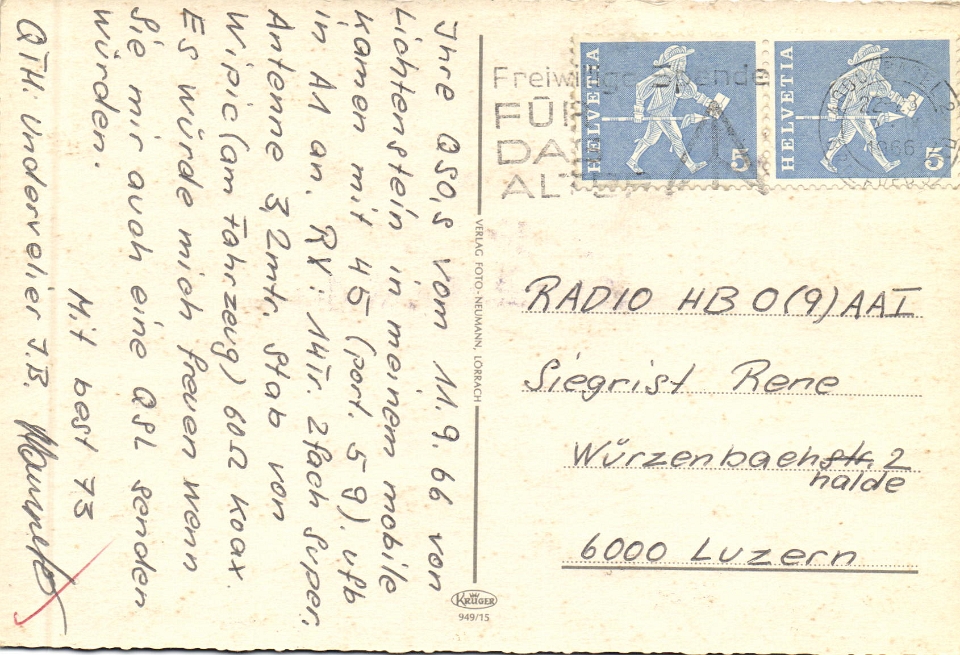 Jhre QSO,s vom 11.9.66 von
Lichtenstein in meinem mobile
kamen mit 45 (port. 59). ufb
in A1 an. RX: 14Tr. 2fach super.
Antenne 3,2mtr. Stab von
Wipic (am Fahrzeug) 60Ω Koax.
Es würde mich freuen wenn
Sie mir auch eine QSL senden
würden.
Mit best 73
QTH: Undervelier J.B.
VERLAG FOTO-NEUMANN, LÖRRACH
KRÜGER
949/15
Freiwillige Spende
FÜR
DAS
ALTER
HELVETIA 5
HELVETIA 5
1966
RADIO HB0(9)AAI
Siegrist Rene
Würzenbachstr. 2
halde
6000 Luzern